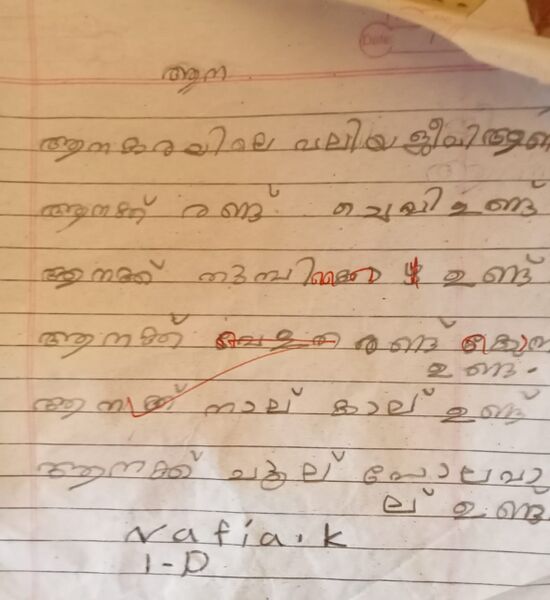 Date
ആന
ആന കരയിലെ വലിയ ജീവി ആണ്
ആനക്ക് രണ്ട് ചെവി ഉണ്ട്
ആനക്ക് തുമ്പികൈ ഉണ്ട്
ആനക്ക് വെളുത്ത രണ്ട് കൊമ്പ
ഉണ്ട്.
ആനക്ക് നാല് കാല് ഉണ്ട്
ആനക്ക് ചൂല് പോലെ വാ
ല് ഉണ്ട
Nafia.k
1-D